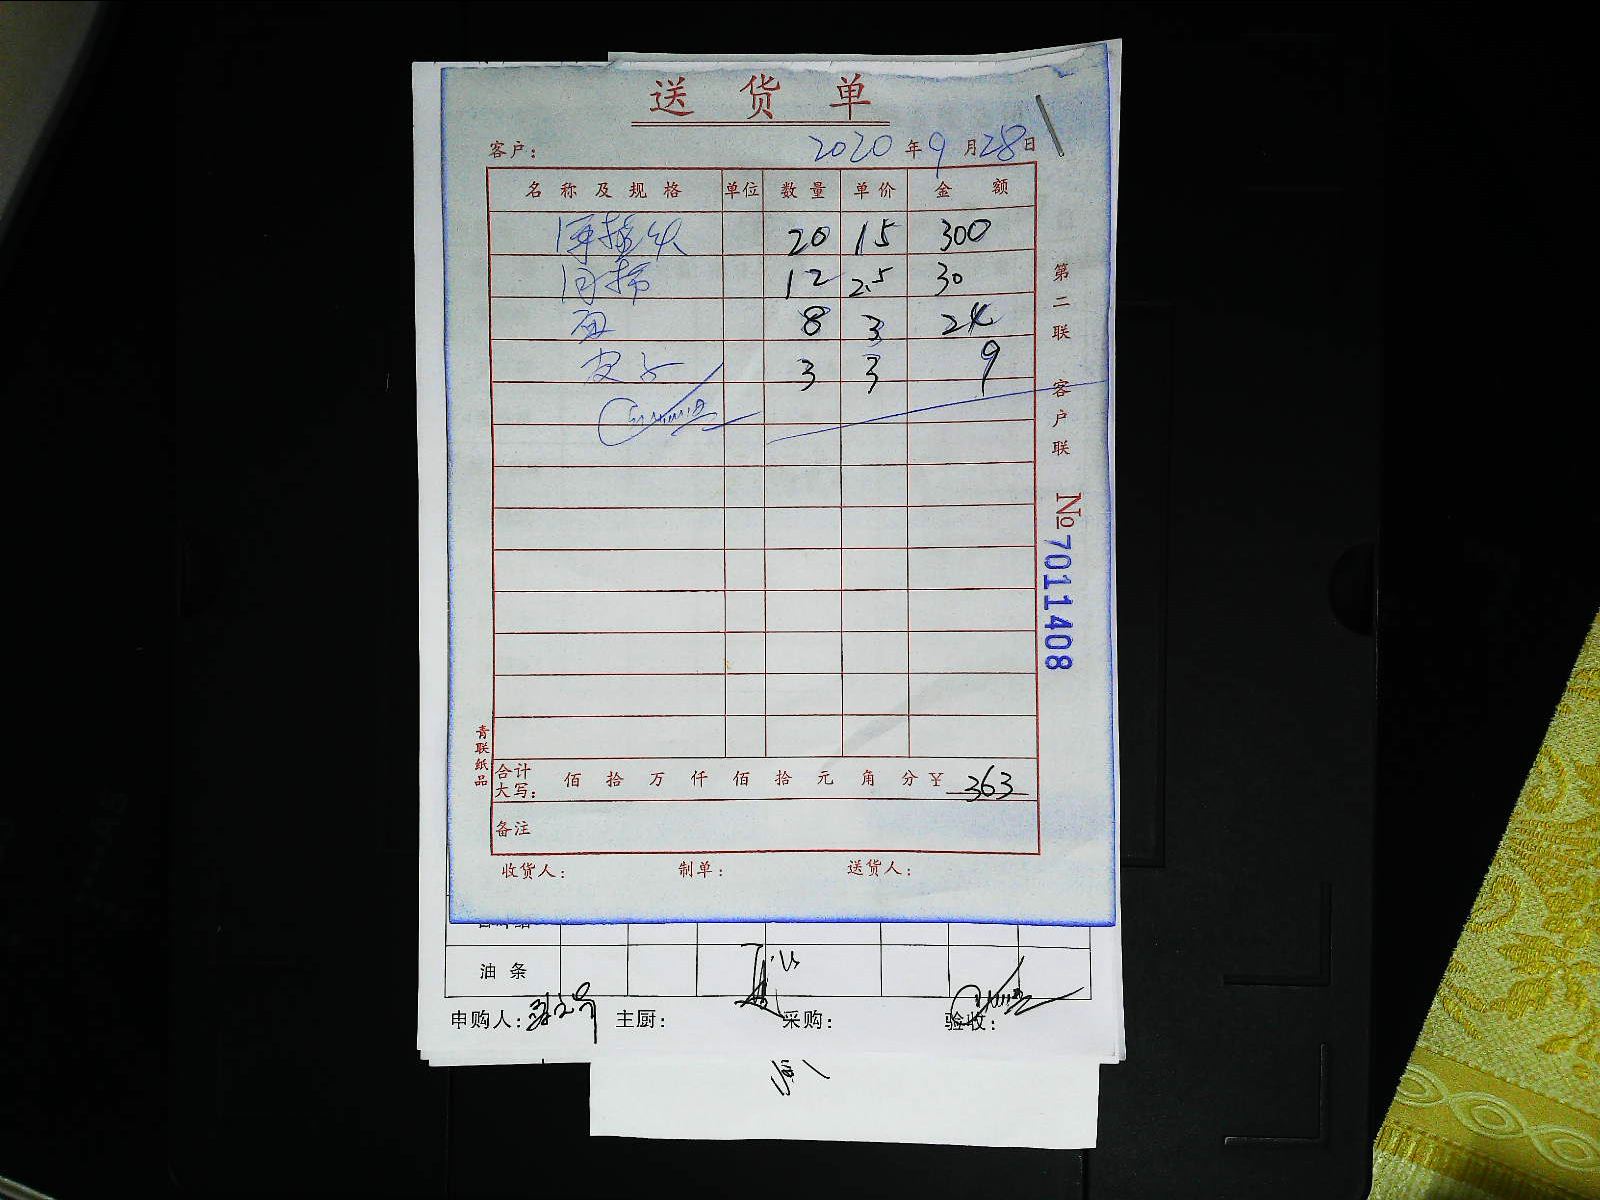 送货单
客户： 2020年9月28日
名称及规格 单位 数量 单价 金额
20 15 300
12 2.5 30
面 8 3 24
皮子 3 3 9
合计大写： 佰 拾 万 仟 佰 拾 元 角 分 ¥ 363
备注
收货人： 制单： 送货人：
第二联 客户联
No 7011408
青联纸品
油条
申购人： 主厨： 采购： 验收：